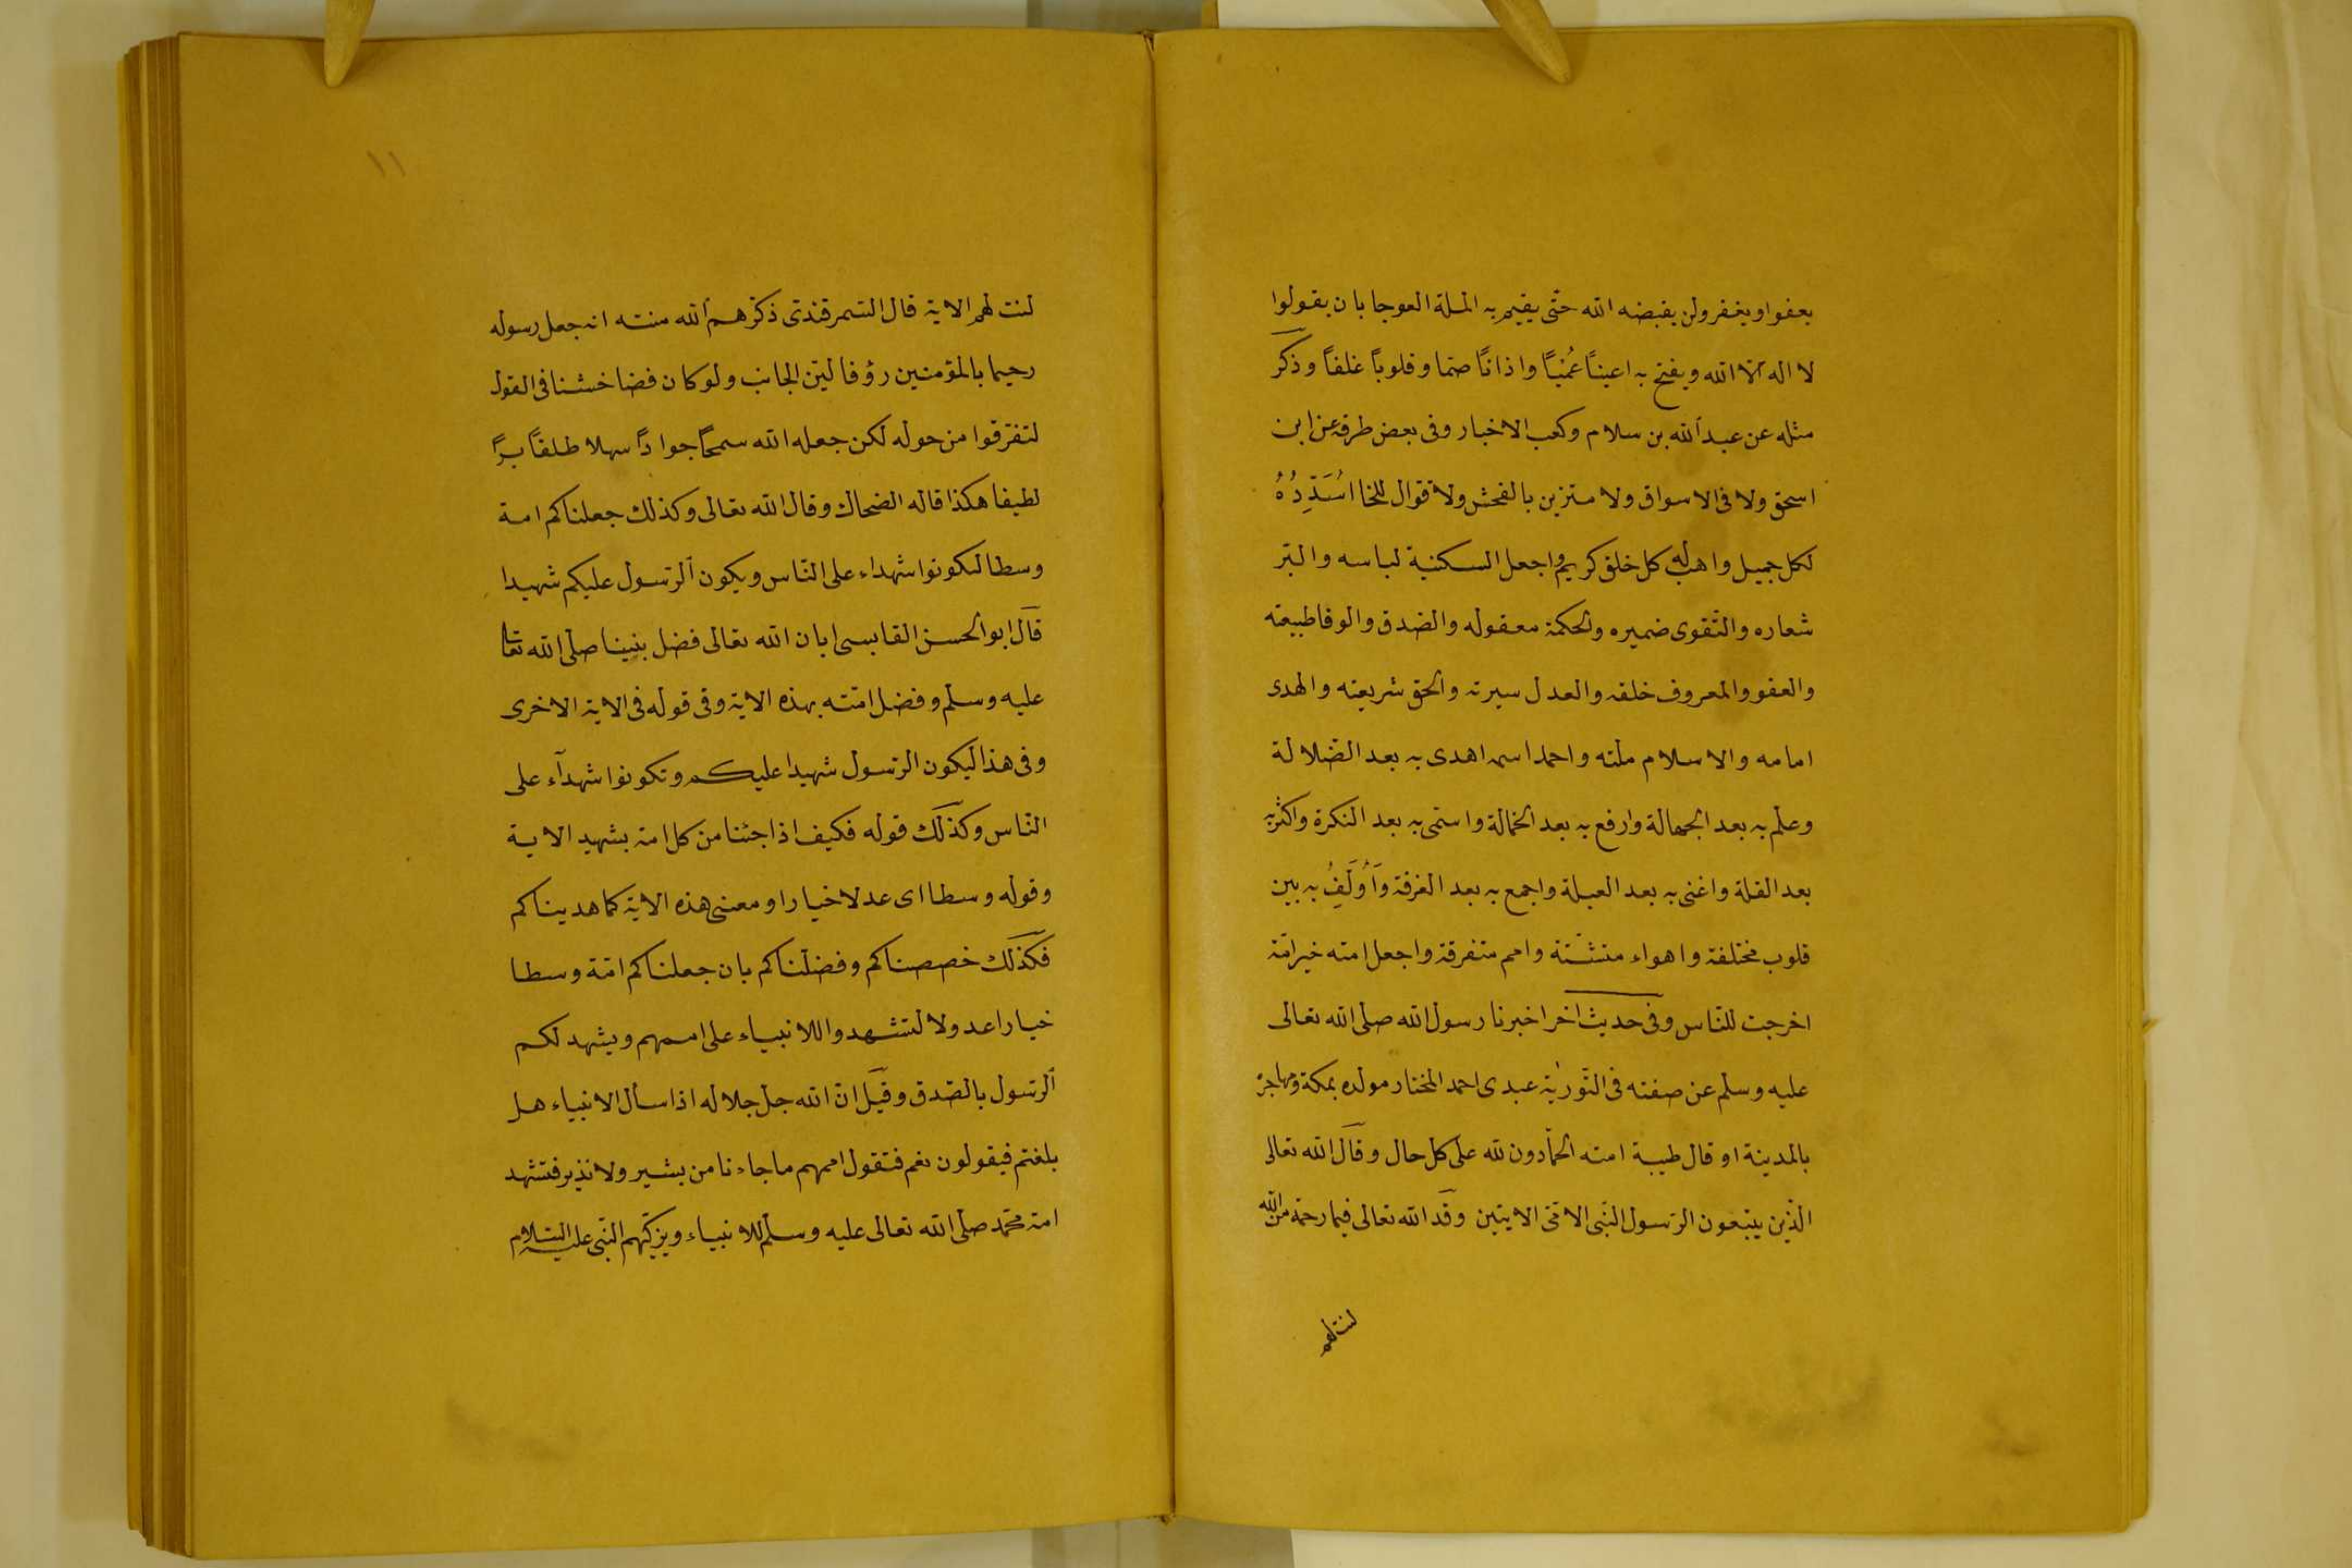 يعفوا ويغفر ولن يقبضه الله حتّى يقيم به الملة العوجا بان يقولوا
لا اله الا الله ويفتح به اعينًا عُمْيًا واذانًا صما وقلوبًا غلفًا وذكر
مثله عن عبد الله بن سلام وكعب الاخبار وفى بعض طرقه عن ابن
اسحق ولا فى الاسواق ولا متزين بالفحش ولا قوال للخنا اُسَدِّدُهُ
لكل جميل واهب له كل خلق كريم واجعل السكنية لباسه والبر
شعاره والتقوى ضميره والحكمة معقوله والصدق والوفا طبيعته
والعفو والمعروف خلقه والعدل سيرته والحق شريعته والهدى
امامه والاسلام ملته واحمد اسمه اهدى به بعد الضّلالة
وعلم به بعد الجهالة وارفع به بعد الخمالة واسمى به بعد النكرة واكثر به
بعد القلة واغنى به بعد العيلة واجمع به بعد الفرقة وَاُولِفُ به بين
قلوب مختلفة واهواء متشتّتة وامم متفرقة واجعل امته خير امّة
اخرجت للنّاس وفى حديث اخر اخبرنا رسول الله صلى الله تعالى
عليه وسلم عن صفته فى التّورٰية عبدى احمد المختار مولده بمكة ومهاجرة
بالمدينة او قال طيبة امته الحمّادون لله على كل حال وقال الله تعالى
الذين يتبعون الرّسول النّبى الامّى الايتين وقد الله تعالى فبما رحمة من الله
لنت لهم
١١
لنت لهم الاية قال السّمرقندى ذكرهم الله منته انه جعل رسوله
رحيما بالمؤمنين رؤفا ليّن الجانب ولو كان فضا خشنا فى القول
لتفرقوا من حوله لكن جعله الله سمحًا جوادًا سهلا طلقًا برًّا
لطيفا هكذا قاله الضحاك وقال الله تعالى وكذلك جعلناكم امة
وسطا لتكونوا شهداء على النّاس ويكون الرّسول عليكم شهيدا
قال ابو الحسن القابسى ابان الله تعالى فضل نبينا صلى الله تعالى
عليه وسلم وفضل امّته بهذه الاية وفى قوله فى الاية الاخرى
وفى هذا ليكون الرّسول شهيدا عليكم وتكونوا شهدآء على
النّاس وكذلك قوله فكيف اذا جئنا من كل امة بشهيد الاية
وقوله وسطا اى عدلا خيارا ومعنى هذه الاية كما هديناكم
فكذلك خصصناكم وفضلناكم بان جعلناكم امّة وسطا
خيارا عدولا لتشهدوا للانبياء على اممهم ويشهد لكم
الرّسول بالصّدق وقيل انّ الله جل جلاله اذا سأل الانبياء هل
بلغتم فيقولون نعم فتقول اممهم ما جاءنا من بشير ولا نذير فتشهد
امة محمّد صلى الله تعالى عليه وسلم للانبياء ويزكّيهم النّبى عليه السّلام